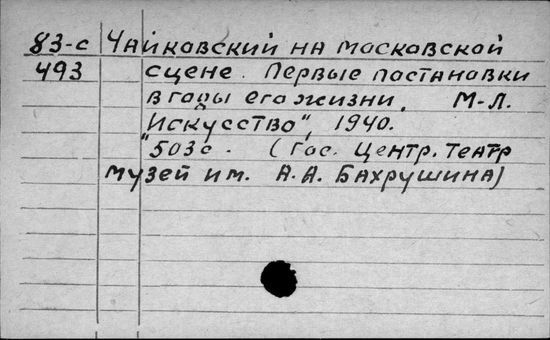 83-с Чайковский на московской
493 сцене. Первые постановки
в годы его жизни. М-Л.
"Искусство", 1940.
503с. (Гос. Центр. театр
музей им. А.А. Бахрушина)